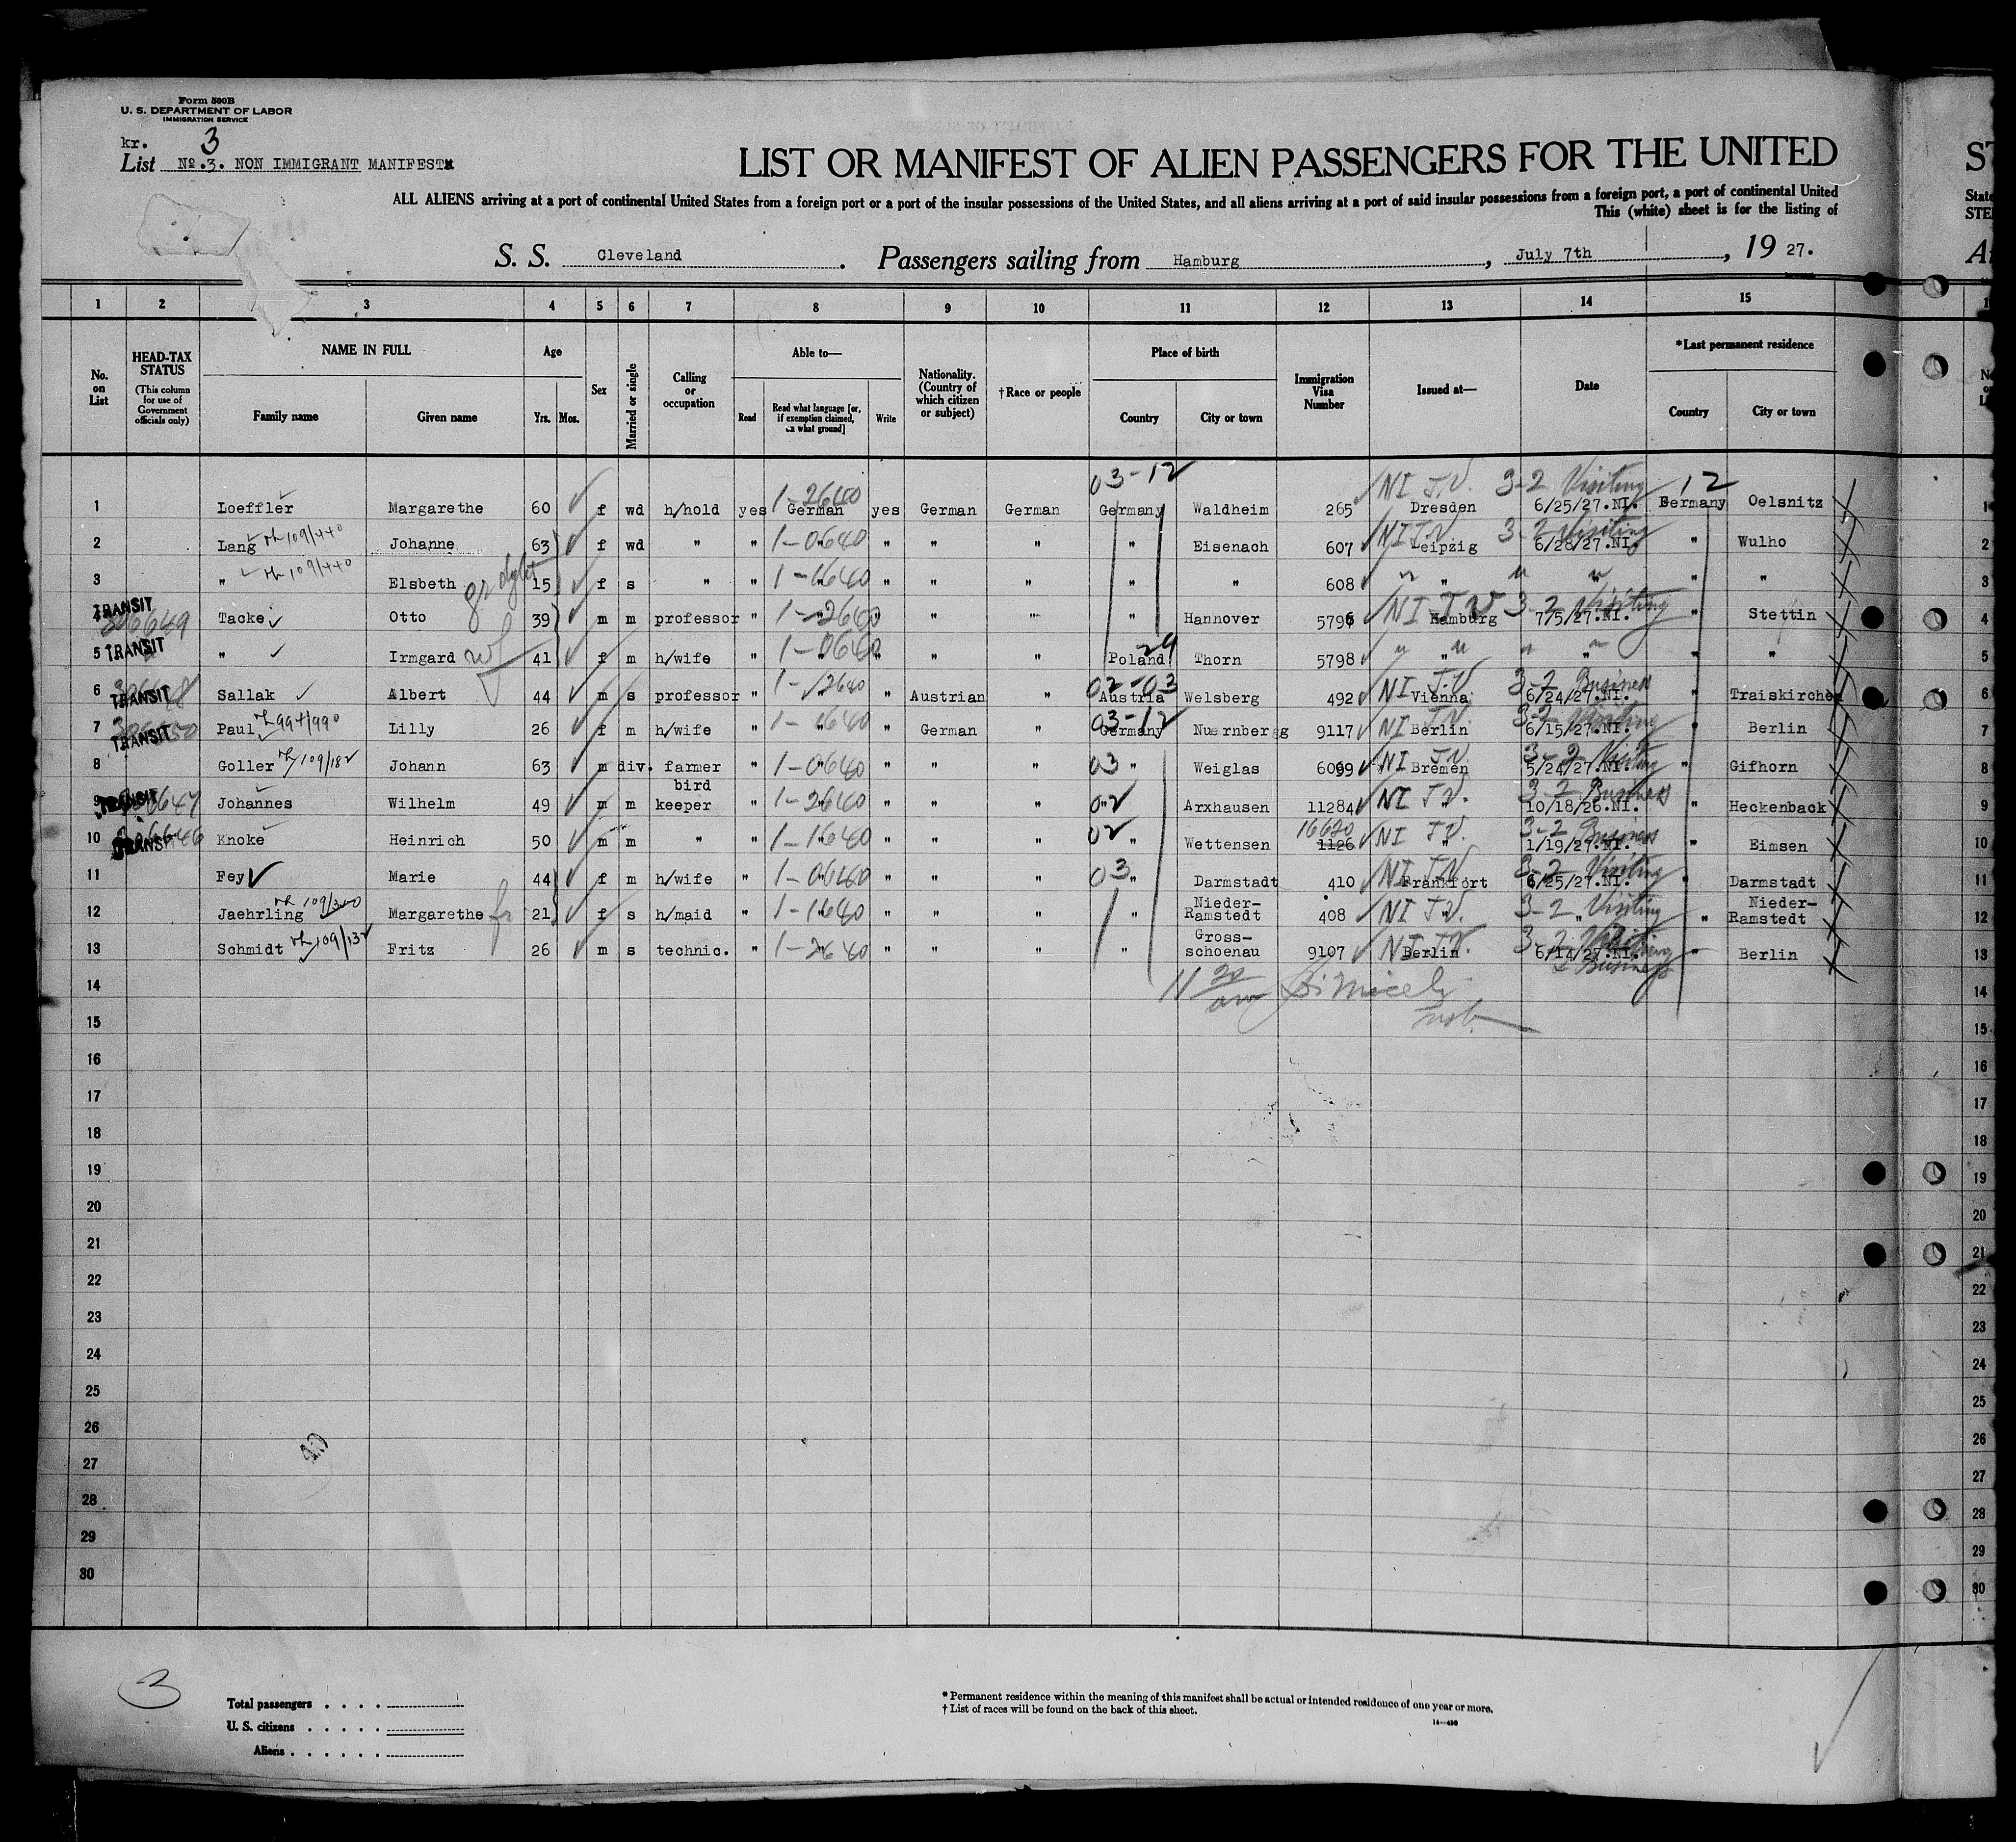 Form 500B
U. S. DEPARTMENT OF LABOR
IMMIGRATION SERVICE
kr. 3
List No.3. NON IMMIGRANT MANIFEST
LIST OR MANIFEST OF ALIEN PASSENGERS FOR THE UNITED
ALL ALIENS arriving at a port of continental United States from a foreign port or a port of the insular possessions of the United States, and all aliens arriving at a port of said insular possessions from a foreign port, a port of continental United
This (white) sheet is for the listing of
S. S. Cleveland. Passengers sailing from Hamburg, July 7th, 19 27.
1 2 3 4 5 6 7 8 9 10 11 12 13 14 15
No. on List
HEAD-TAX STATUS
(This column for use of Government officials only)
NAME IN FULL
Family name Given name
Age
Yrs. Mos.
Sex
Married or single
Calling or occupation
Able to—
Read
Read what language [or, if exemption claimed, on what ground]
Write
Nationality. (Country of which citizen or subject)
†Race or people
Place of birth
Country City or town
Immigration Visa Number
Issued at—
Date
*Last permanent residence
Country City or town
03-12 NI T.V. 3-2 Visiting 12
1 Loeffler Margarethe 60 f wd h/hold yes 1-2640 German yes German German Germany Waldheim 265 Dresden 6/25/27.NI. Germany Oelsnitz 1
2 Lang 109/440 Johanne 63 f wd " " 1-0640 " " " " " Eisenach 607 NI T.V. Leipzig 3-2 Visiting 6/28/27.NI. " Wulho 2
3 " 109/440 Elsbeth gr dght 15 f s " " 1-1640 " " " " " " 608 " " " " 3
4 TRANSIT 306649 Tacke Otto 39 m m professor " 1-2640 " " " " " Hannover 5796 NI T.V. Hamburg 3-2 Visiting 7/5/27.NI. " Stettin 4
5 TRANSIT " Irmgard wf 41 f m h/wife " 1-0640 " " " " Poland 24 Thorn 5798 " " " " 5
6 TRANSIT Sallak Albert 44 m s professor " 1-2640 " " Austrian " 02-03 Austria Welsberg 492 NI T.V. Vienna 3-2 Business 6/24/27.NI. " Traiskirchen 6
7 TRANSIT Paul 994/990 Lilly 26 f m h/wife " 1-1640 " " German " 03-12 Germany Nuernberg 9117 NI T.V. Berlin 3-2 Visiting 6/15/27.NI. " Berlin 7
8 Goller 109/182 Johann 63 m div. farmer " 1-0640 " " " " 03 " Weiglas 6099 NI T.V. Bremen 3-2 Visiting 5/24/27.NI. " Gifhorn 8
9 TRANSIT 306647 Johannes Wilhelm 49 m m bird keeper " 1-2640 " " " " 02 " Arxhausen 11284 NI T.V. " 3-2 Business 10/18/26.NI. " Heckenback 9
10 TRANSIT 306646 Knoke Heinrich 50 m m " " 1-1640 " " " " 02 " Wettensen 16620 1126 NI T.V. " 3-2 Business 1/19/27.NI. " Eimsen 10
11 Fey Marie 44 f m h/wife " 1-0640 " " " " 03 " Darmstadt 410 NI T.V. Frankfort 3-2 Visiting 6/25/27.NI. " Darmstadt 11
12 Jaehrling 109/300 Margarethe 21 f s h/maid " 1-1640 " " " " " Nieder-Ramstedt 408 NI T.V. " 3-2 Visiting " " Nieder-Ramstedt 12
13 Schmidt 109/132 Fritz 26 m s technic. " 1-2640 " " " " " Gross-schoenau 9107 NI T.V. Berlin 3-2 Visiting & Business 6/14/27.NI. " Berlin 13
14 11 20 am 14
15 15
16 16
17 17
18 18
19 19
20 20
21 21
22 22
23 23
24 24
25 25
26 26
27 27
28 28
29 29
30 30
3
Total passengers . . . .
U. S. citizens . . . . .
Aliens . . . . . .
* Permanent residence within the meaning of this manifest shall be actual or intended residence of one year or more.
† List of races will be found on the back of this sheet.